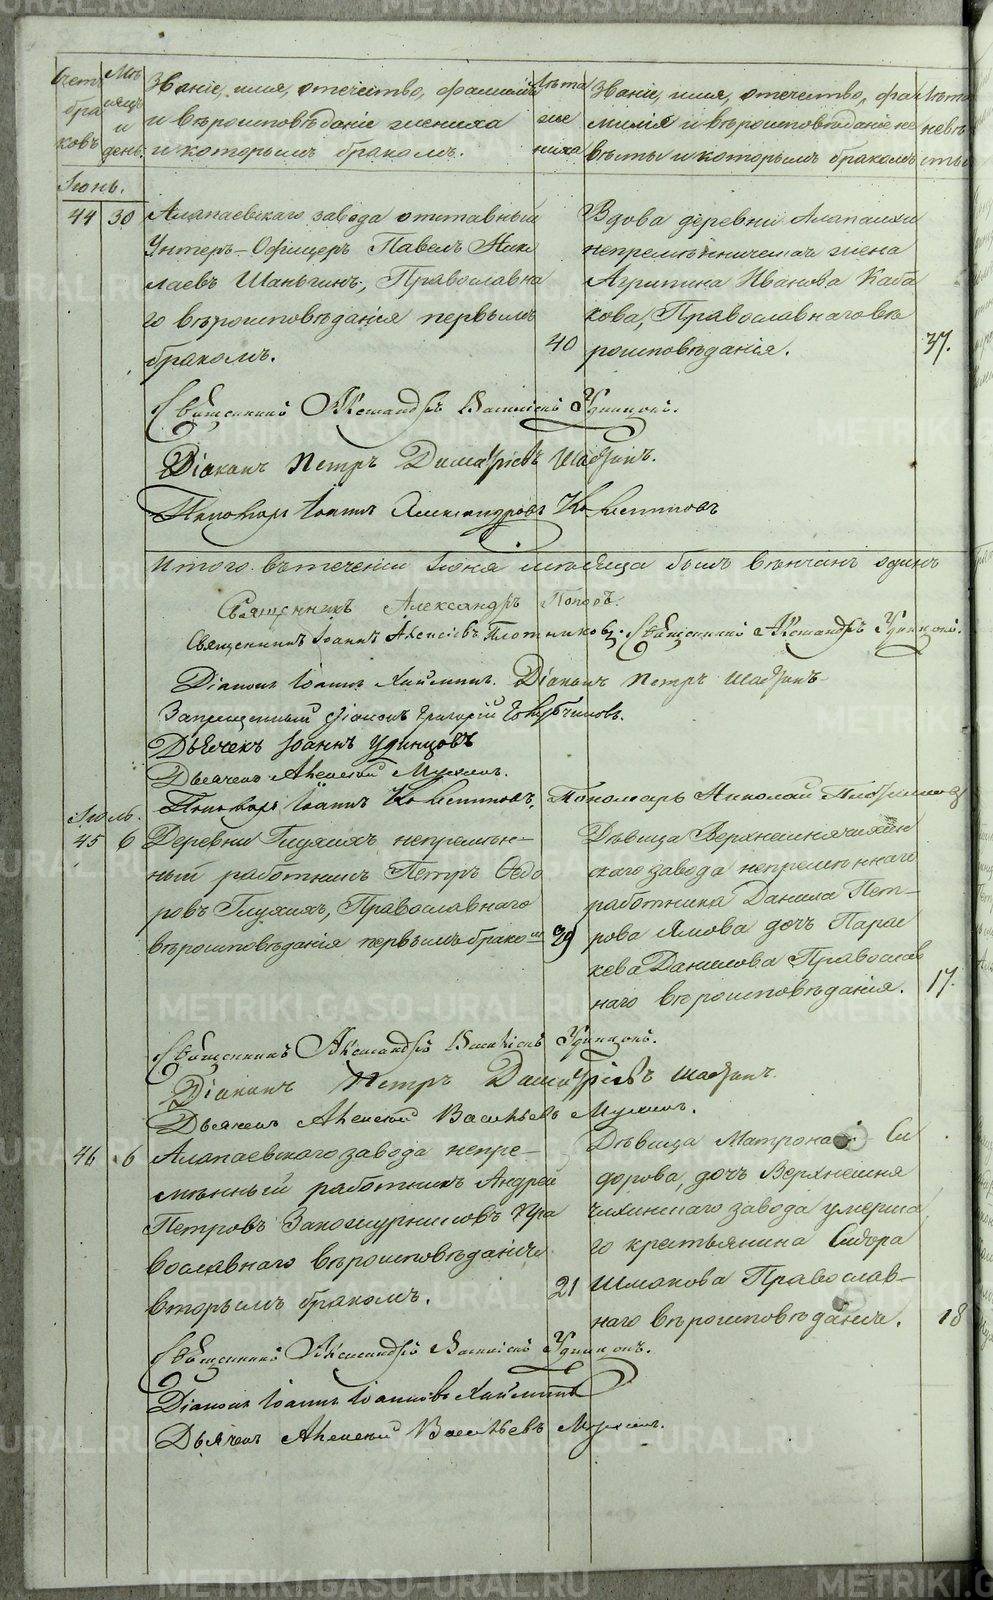 Счетъ браковъ
Мѣсяцъ и день.
Званіе, имя, отечество, фамилія
и вѣроисповѣданіе жениха
и которымъ бракомъ.
Лѣта жениха
Званіе, имя, отечество, фа-
милія и вѣроисповѣданіе не-
вѣсты и которымъ бракомъ
Лѣта невѣсты
Іюнь.
44 30 Алапаевскаго завода отставный
Унтеръ-Офицеръ Павелъ Нико
лаевъ Шаньгинъ, Православна
го вѣроисповѣданія первымъ
бракомъ.
40
Вдова деревни Алапаихи
непремѣнническая жена
Агрипина Иванова Каба
кова, Православнаго вѣ
роисповѣданія.
37.
Священникъ Александръ Удинцовъ.
Діаконъ Петръ Димитріевъ Шадринъ.
Пономарь Іоаннъ Александровъ
Итого въ теченіи Іюня мѣсяца былъ вѣнчанъ одинъ
Священникъ Александръ Поповъ.
Священникъ Іоаннъ Алексіевъ Плотниковъ. Священникъ Александръ Удинцовъ.
Діаконъ Іоаннъ Діаконъ Петръ Шадринъ
Запрещенный діаконъ Григорій
Дьячекъ Іоаннъ Удинцовъ
Дьячекъ Алексѣй
Пономарь Іоаннъ Пономарь Николай
Іюль.
45 6 Деревни Глухихъ непремѣн-
ный работникъ Петръ Ѳедо
ровъ Глухихъ, Православнаго
вѣроисповѣданія первымъ бракомъ
29
Дѣвица Верхнесинячихин
скаго завода непремѣннаго
работника Данила Пет-
рова Ямова дочь Парас
кева Данилова Православ
наго вѣроисповѣданія.
17.
Священникъ Александръ Удинцовъ.
Діаконъ Петръ Димитріевъ Шадринъ.
Дьячекъ Алексѣй Васильевъ
46 6 Алапаевскаго завода непре-
мѣнный работникъ Андрей
Петровъ Закожурниковъ Пра
вославнаго вѣроисповѣданія
вторымъ бракомъ.
21
Дѣвица Матрона Си
дорова, дочь Верхнесиня
чихинскаго завода умерша
го крестьянина Сидора
Шмакова Православ-
наго вѣроисповѣданія.
18
Священникъ Александръ Удинцовъ.
Діаконъ Іоаннъ Іоанновъ
Дьячекъ Алексѣй Васильевъ
METRIKI.GASO-URAL.RU